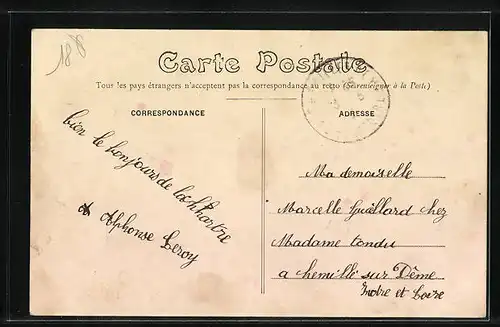 18 P
Carte Postale
Tous les pays étrangers n'acceptent pas la correspondance au recto (Se renseigner à la Poste)
CORRESPONDANCE
ADRESSE
bien le bonjours de la Chhartre
Alphonse Leroy
Mademoiselle
Marcelle Guillard chez
Madame tondu
a chemillé sur Dême
Indre et Loire